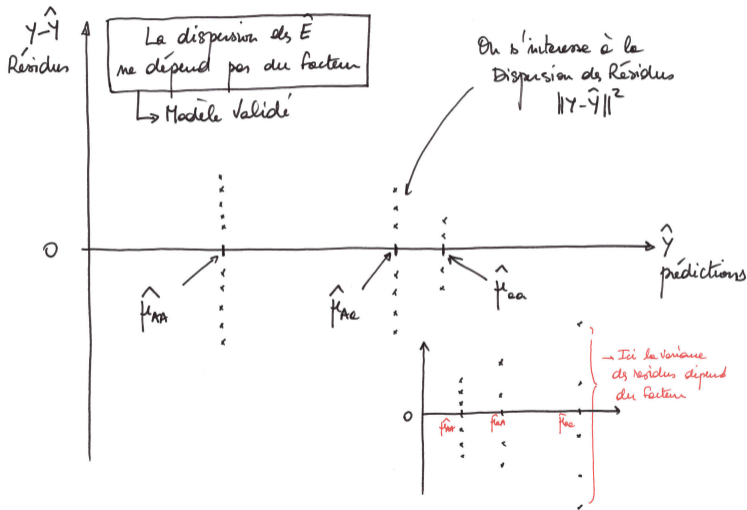 Y-Ŷ
Résidus
La dispersion des Ê
ne dépend pas du facteur
↳ Modèle Validé
On s'interesse à la
Dispersion des Résidus
||Y-Ŷ||²
0
Ŷ
prédictions
μ̂AA
μ̂Aa
μ̂aa
0
μ̂AA
μ̂aA
μ̂aa
→ Ici la variance
des résidus dépend
du facteur